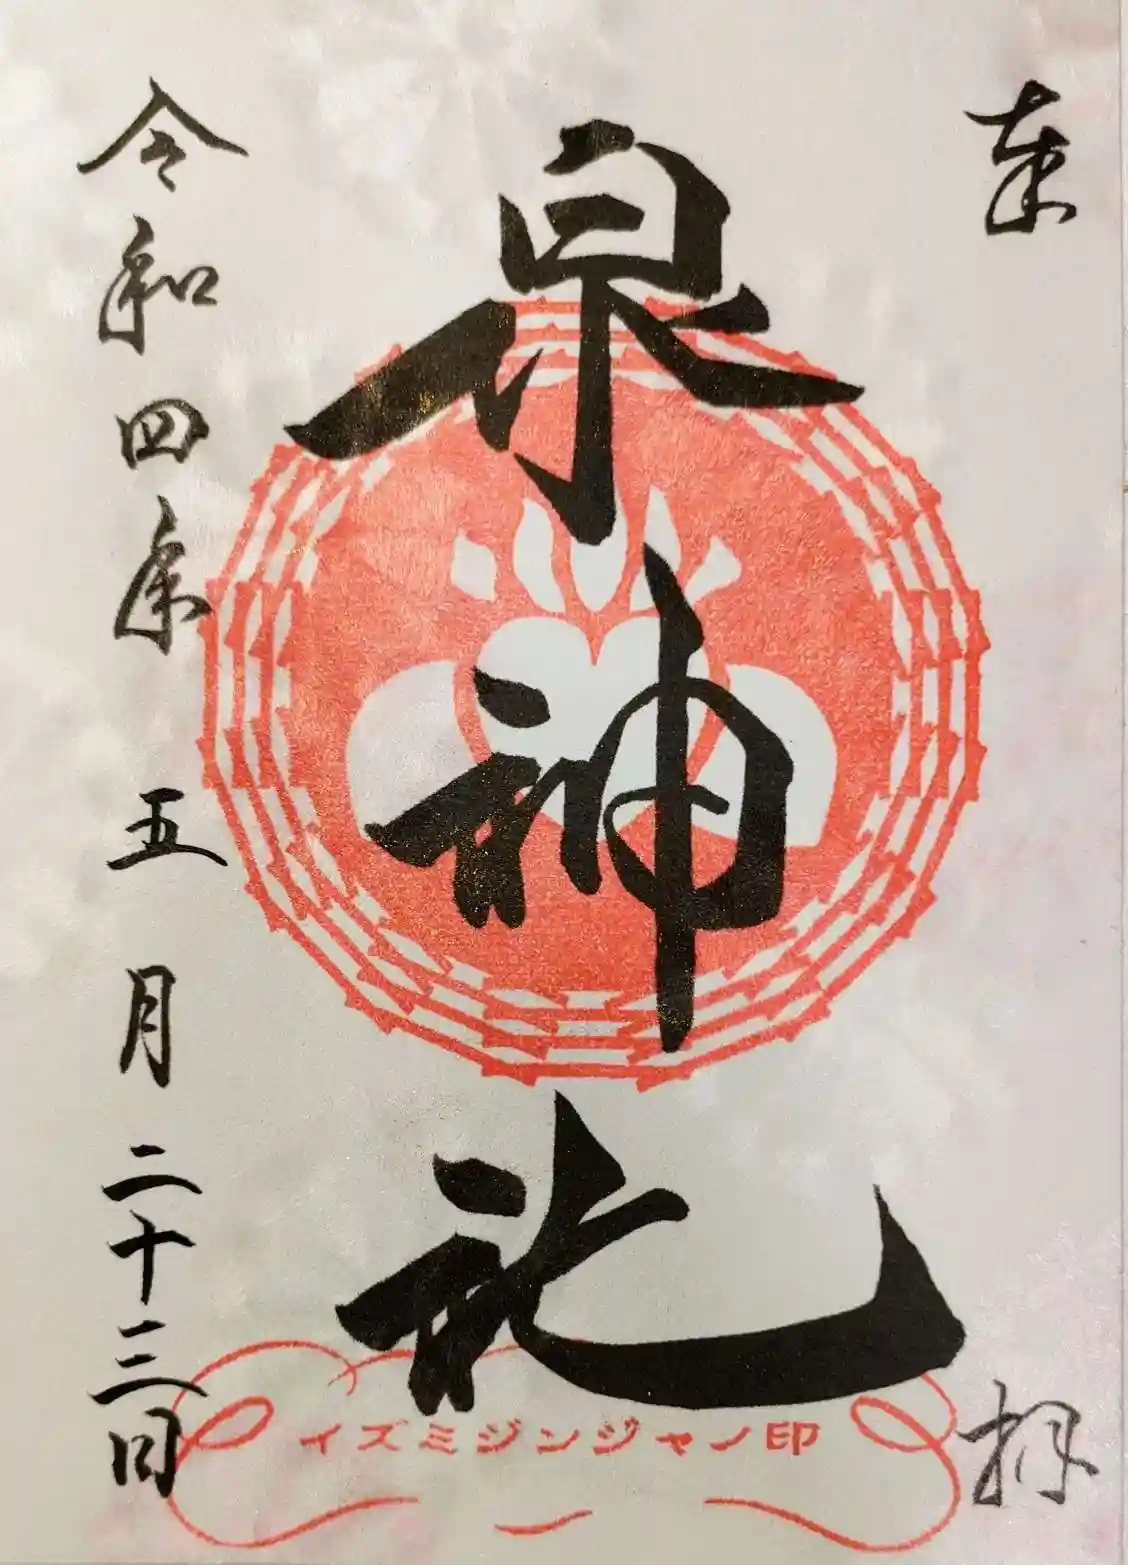 奉拝
泉神社
イズミジンジャノ印
令和四年五月二十三日